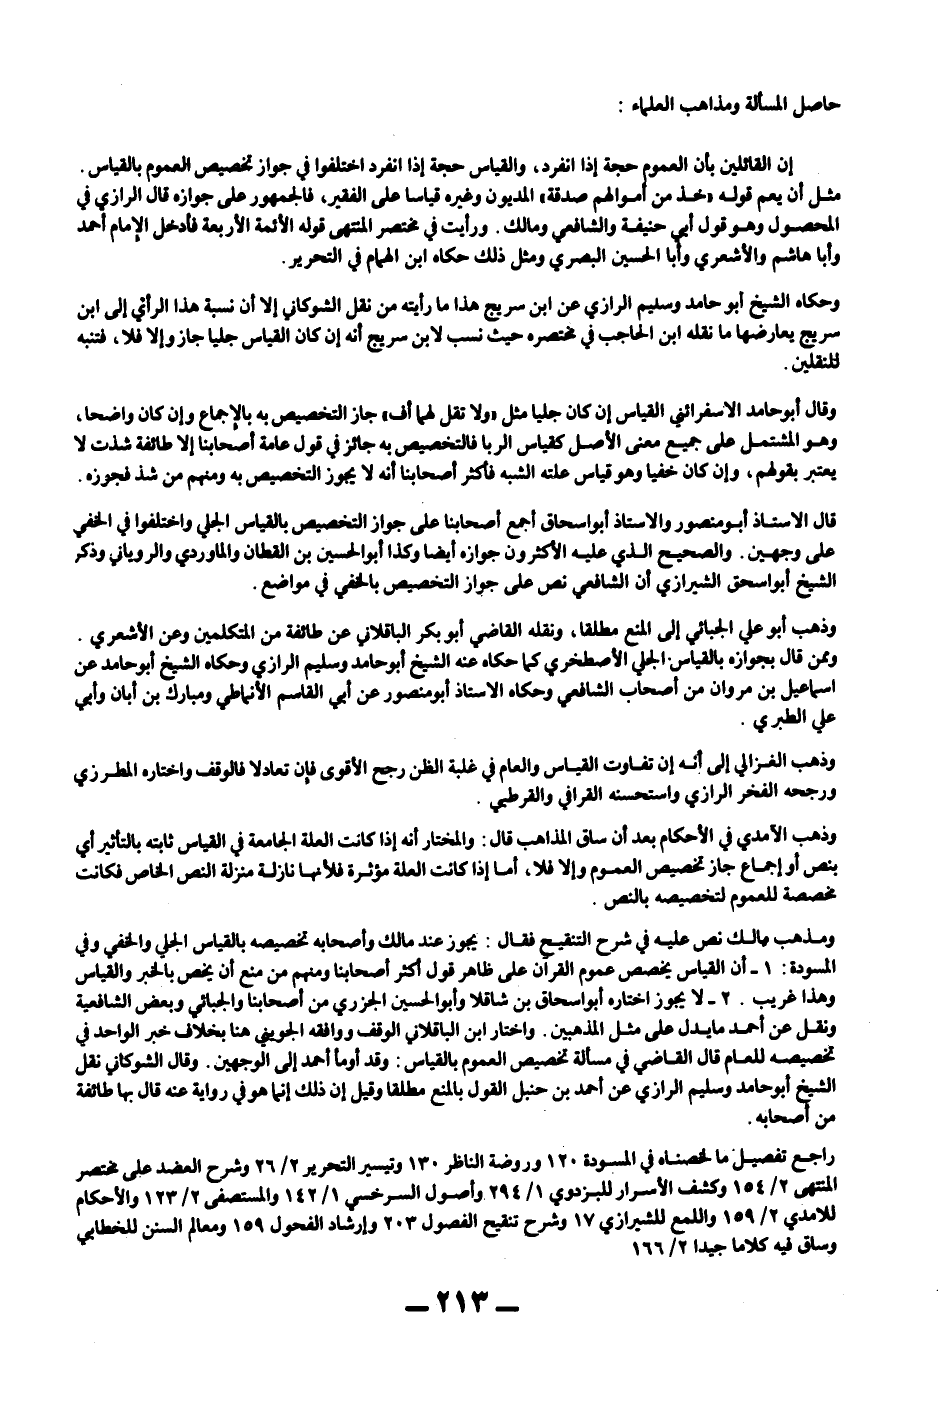 حاصل المسألة ومذاهب العلماء :
إن القائلين بأن العموم حجة إذا انفرد، والقياس حجة إذا انفرد اختلفوا في جواز تخصيص العموم بالقياس .
مثل أن يعم قوله «خذ من أموالهم صدقة» المديون وغيره قياسا على الفقير، فالجمهور على جوازه قال الرازي في
المحصول وهو قول أبي حنيفة والشافعي ومالك . ورأيت في مختصر المنتهى قوله الأئمة الأربعة فأدخل الإمام أحمد
وأبا هاشم والأشعري وأبا الحسين البصري ومثل ذلك حكاه ابن الهمام في التحرير .
وحكاه الشيخ أبو حامد وسليم الرازي عن ابن سريج هذا ما رأيته من نقل الشوكاني إلا أن نسبة هذا الرأي إلى ابن
سريج يعارضها ما نقله ابن الحاجب في مختصره حيث نسب لابن سريج أنه إن كان القياس جليا جاز وإلا فلا، فتنبه
للنقلين .
وقال أبوحامد الاسفرائني القياس إن كان جليا مثل «ولا تقل لهما أف» جاز التخصيص به بالإجماع وإن كان واضحا،
وهو المشتمل على جميع معنى الأصل كقياس الربا فالتخصيص به جائز في قول عامة أصحابنا إلا طائفة شذت لا
يعتبر بقولهم، وإن كان خفيا وهو قياس علته الشبه فأكثر أصحابنا أنه لا يجوز التخصيص به ومنهم من شذ فجوزه .
قال الاستاذ أبومنصور والاستاذ أبواسحاق أجمع أصحابنا على جواز التخصيص بالقياس الجلي واختلفوا في الخفي
على وجهين . والصحيح الذي عليه الأكثرون جوازه أيضا وكذا أبوالحسين بن القطان والماوردي والروياني وذكر
الشيخ أبواسحق الشيرازي أن الشافعي نص على جواز التخصيص بالخفي في مواضع .
وذهب أبو علي الجبائي إلى المنع مطلقا، ونقله القاضي أبو بكر الباقلاني عن طائفة من المتكلمين وعن الأشعري .
وممن قال بجوازه بالقياس الجلي الأصطخري كما حكاه عنه الشيخ أبوحامد وسليم الرازي وحكاه الشيخ أبوحامد عن
اسماعيل بن مروان من أصحاب الشافعي وحكاه الاستاذ أبومنصور عن أبي القاسم الأنماطي ومبارك بن أبان وأبي
علي الطبري .
وذهب الغزالي إلى أنه إن تفاوت القياس والعام في غلبة الظن رجح الأقوى فإن تعادلا فالوقف واختاره المطرزي
ورجحه الفخر الرازي واستحسنه القرافي والقرطبي .
وذهب الآمدي في الأحكام بعد أن ساق المذاهب قال : والمختار أنه إذا كانت العلة الجامعة في القياس ثابته بالتأثير أي
بنص أو إجماع جاز تخصيص العموم وإلا فلا، أما إذا كانت العلة مؤثرة فلأنها نازلة منزلة النص الخاص فكانت
مخصصة للعموم لتخصيصه بالنص .
ومذهب مالك نص عليه في شرح التنقيح فقال : يجوز عند مالك وأصحابه تخصيصه بالقياس الجلي والخفي وفي
المسودة : ١ - أن القياس يخصص عموم القرآن على ظاهر قول أكثر أصحابنا ومنهم من منع أن يخص بالخبر والقياس
وهذا غريب . ٢ - لا يجوز اختاره أبواسحاق بن شاقلا وأبوالحسين الجزري من أصحابنا والجبائي وبعض الشافعية
ونقل عن أحمد مايدل على مثل المذهبين . واختار ابن الباقلاني الوقف ووافقه الجويني هنا بخلاف خبر الواحد في
تخصيصه للعام قال القاضي في مسألة تخصيص العموم بالقياس : وقد أومأ أحمد إلى الوجهين . وقال الشوكاني نقل
الشيخ أبوحامد وسليم الرازي عن أحمد بن حنبل القول بالمنع مطلقا وقيل إن ذلك إنما هو في رواية عنه قال بها طائفة
من أصحابه .
راجع تفصيل ما لخصناه في المسودة ١٢٠ وروضة الناظر ١٣٠ وتيسير التحرير ٢/ ٢٦ وشرح العضد على مختصر
المنتهى ٢/ ١٥٤ وكشف الأسرار للبزدوي ١/ ٢٩٤ وأصول السرخسي ١/ ١٤٢ والمستصفى ٢/ ١٢٣ والأحكام
للامدي ٢/ ١٥٩ واللمع للشيرازي ١٧ وشرح تنقيح الفصول ٢٠٣ وإرشاد الفحول ١٥٩ ومعالم السنن للخطابي
وساق فيه كلاما جيدا ٢/ ١٦٦
ــ ٢١٣ ــ